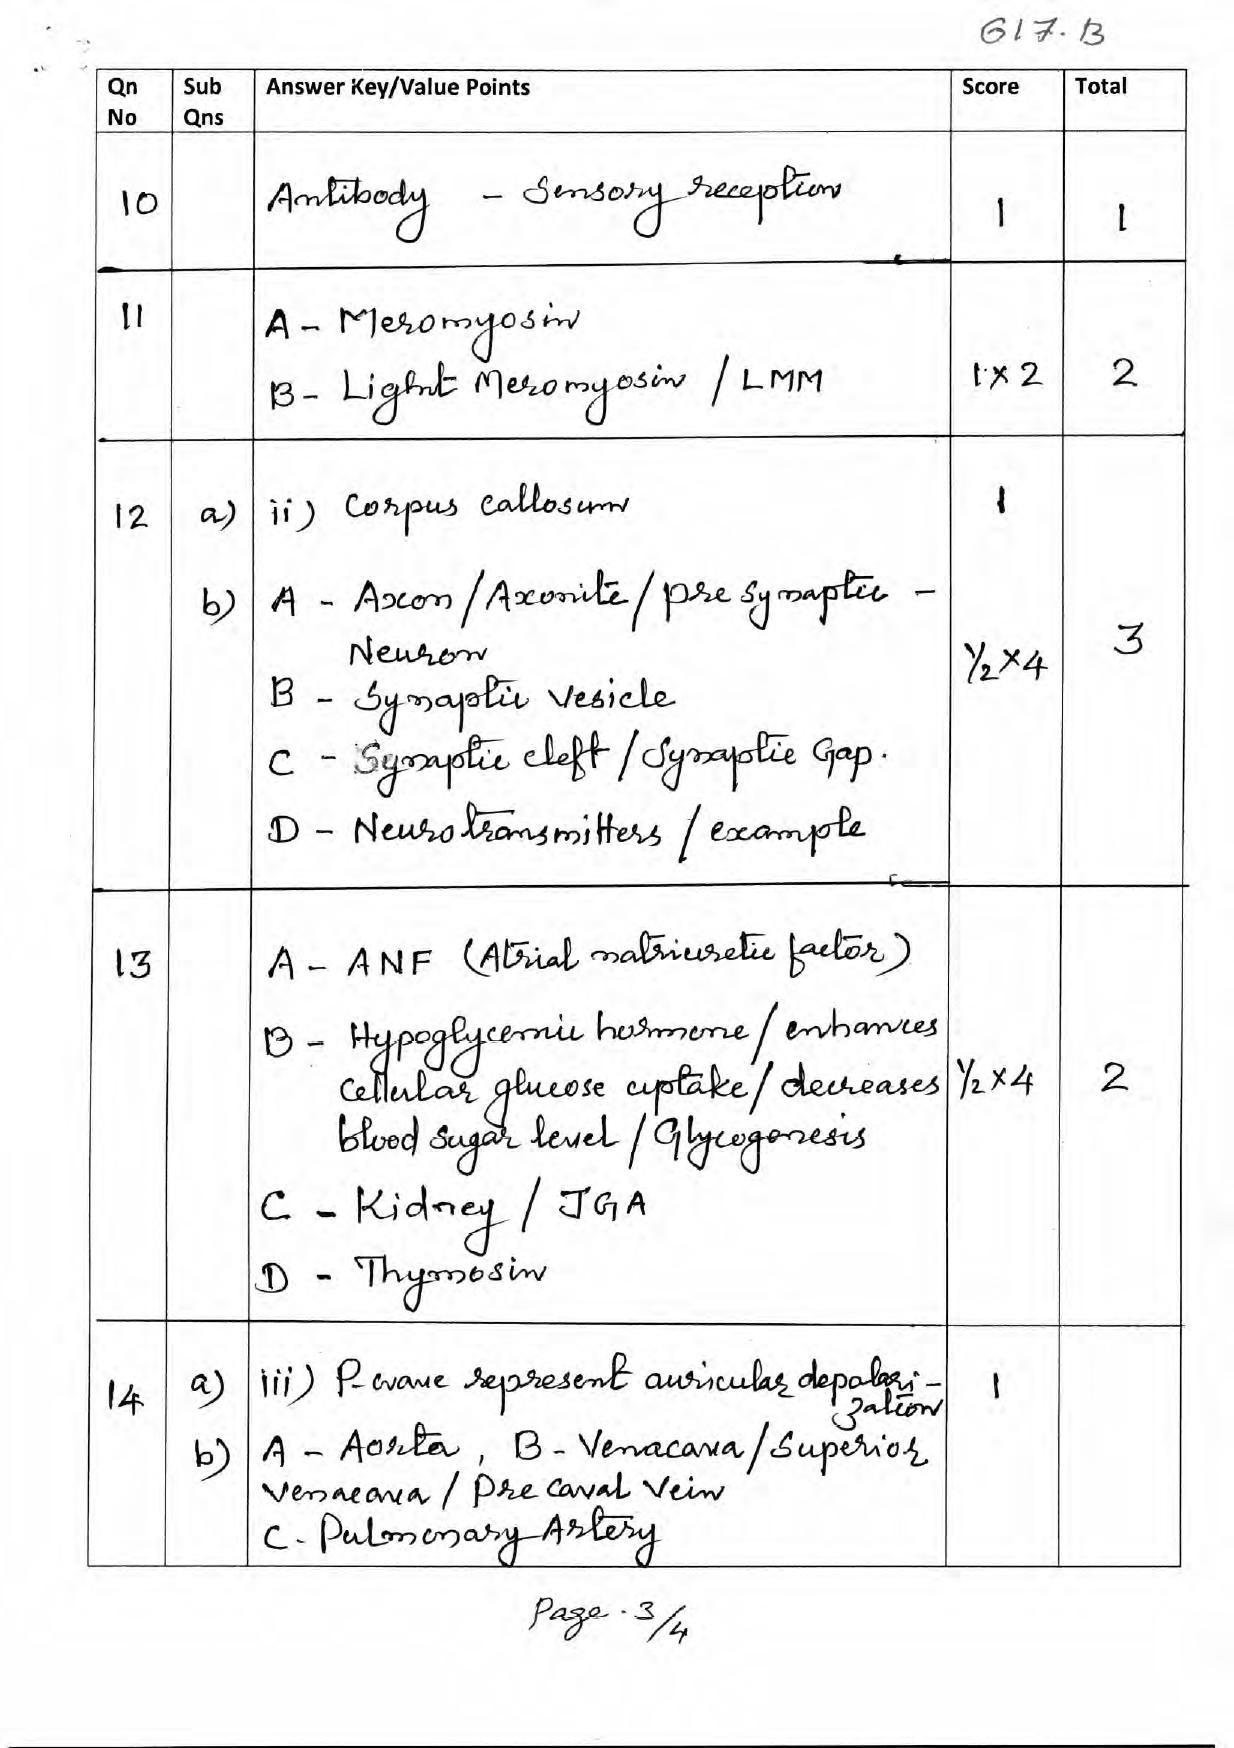 G17.B
Qn No Sub Qns Answer Key/Value Points Score Total
10 Antibody - Sensory reception 1 1
11 A - Meromyosin
B - Light Meromyosin / LMM 1 x 2 2
12 a) ii) Corpus callosum 1
b) A - Axon / Axonite / pre synaptic -
Neuron
½ x 4 3
B - Synaptic vesicle
C - Synaptic cleft / Synaptic Gap.
D - Neurotransmitters / example
13 A - ANF (Atrial natriuretic factor)
B - Hypoglycemic hormone / enhances
cellular glucose uptake / decreases ½ x 4 2
blood sugar level / Glycogenesis
C - Kidney / JGA
D - Thymosin
14 a) iii) P-wave represent auricular depolari-
zation 1
b) A - Aorta, B - Venacava / Superior
Venacava / Pre caval Vein
C - Pulmonary Artery
Page. 3/4